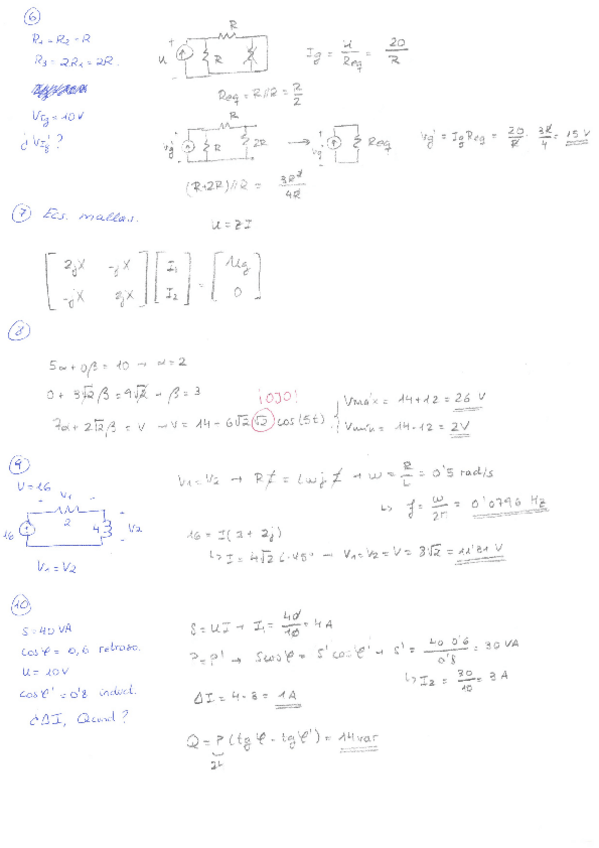 6
R₁ = R₂ = R
R₃ = 2R₁ = 2R.
V_Ig = 10V
¿V_Ig'?
R
u
R
Ig = u/Req = 20/R
Req = R//R = R/2
R
Vg'
R
2R
→
Vg'
Req
Vg' = Ig Req = 20/R · 3R/4 = 15 V
(R+2R)//R = 3R²/4R
7 Ecs. mallas.
U = Z I
[2jX -jX; -jX 2jX] [I₁; I₂] = [Ug; 0]
8
5α + 0β = 10 → α = 2
0 + 3√2 β = 9√2 → β = 3
¡OJO!
7α + 2√2 β = V → V = 14 - 6√2 √2 cos(5t)
Vmáx = 14 + 12 = 26 V
Vmín = 14 - 12 = 2V
9
U = 16
V₁
2
16
4
V₂
V₁ = V₂
V₁ = V₂ → R I = L w j I → w = R/L = 0'5 rad/s
↳ f = w/2π = 0'0796 Hz
16 = I(2 + 2j)
↳ I = 4√2 ∠-45° → V₁ = V₂ = V = 8√2 = 11'31 V
10
S = 40 VA
cos φ = 0,6 retraso.
U = 10V
cos φ' = 0'8 induct.
¿ΔI, Qcond?
S = UI → I₁ = 40/10 = 4 A
P = P' → S cos φ = S' cos φ' → S' = 40 · 0'6/0'8 = 30 VA
↳ I₂ = 30/10 = 3 A
ΔI = 4 - 3 = 1A
Q = P (tg φ - tg φ') = 14 var
24